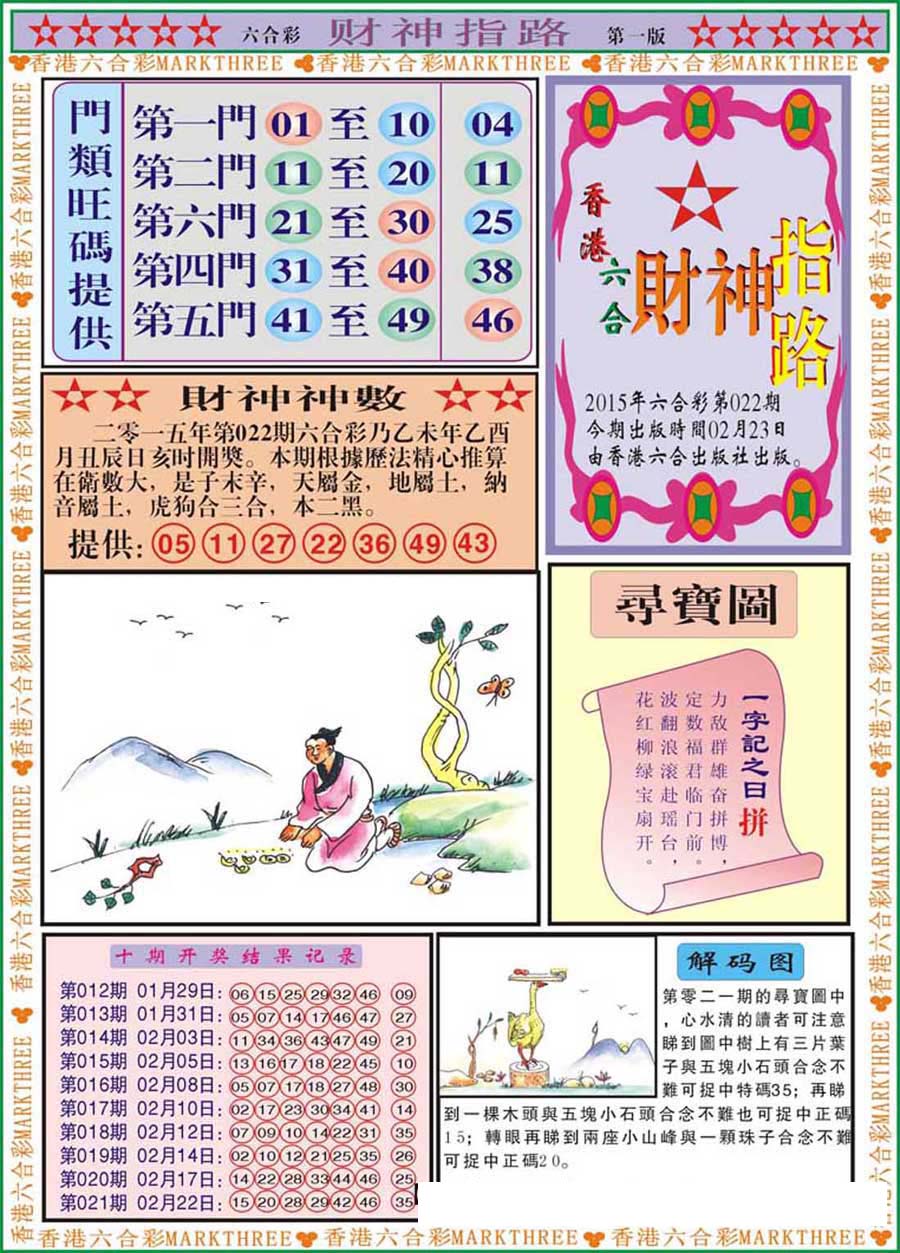 六合彩 财神指路 第一版
香港六合彩MARKTHREE 香港六合彩MARKTHREE 香港六合彩MARKTHREE
門類旺碼提供
第一門 01 至 10 04
第二門 11 至 20 11
第六門 21 至 30 25
第四門 31 至 40 38
第五門 41 至 49 46
香港六合
財神指路
2015年六合彩第022期
今期出版時間02月23日
由香港六合出版社出版。
財神神數
二零一五年第022期六合彩乃乙未年乙酉
月丑辰日亥时開獎。本期根據歷法精心推算
在衛數大，是子末辛，天屬金，地屬土，納
音屬土，虎狗合三合，本二黑。
提供: 05 11 27 22 36 49 43
尋寶圖
一字記之曰 拼
力敌群雄奋拼博，
定数福君临门前。
波翻浪滚赴瑶台，
花红柳绿宝扇开。
十期开奖结果记录
第012期 01月29日: 06 15 25 29 32 46 09
第013期 01月31日: 05 07 14 17 46 47 27
第014期 02月03日: 11 34 36 43 47 49 21
第015期 02月05日: 13 16 17 18 22 45 10
第016期 02月08日: 05 07 17 18 27 48 30
第017期 02月10日: 02 17 23 30 34 41 14
第018期 02月12日: 07 09 10 14 22 31 35
第019期 02月14日: 02 10 12 21 25 35 26
第020期 02月17日: 14 22 28 33 44 46 25
第021期 02月22日: 15 20 28 29 42 46 35
解码图
第零二一期的尋寶圖中
，心水清的讀者可注意
睇到圖中樹上有三片葉
子與五塊小石頭合念不
難可捉中特碼35；再睇
到一棵木頭與五塊小石頭合念不難也可捉中正碼
15；轉眼再睇到兩座小山峰與一顆珠子合念不難
可捉中正碼20。
香港六合彩MARKTHREE 香港六合彩MARKTHREE 香港六合彩MARKTHREE